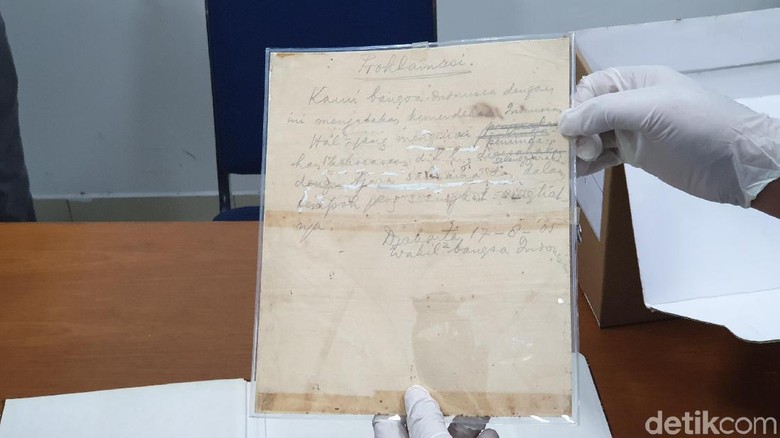 Proklamasi.
Kami bangsa Indonesia dengan
ini menjatakan kemerdekaan Indonesia.
Hal² jang mengenai
kan kekoeasaan d.l.l.,
dengan tjara saksama dan dalam
tempoh jang sesingkat-singkat
nja.
Djakarta, 17-8-'05
Wakil² bangsa Indonesia
detikcom